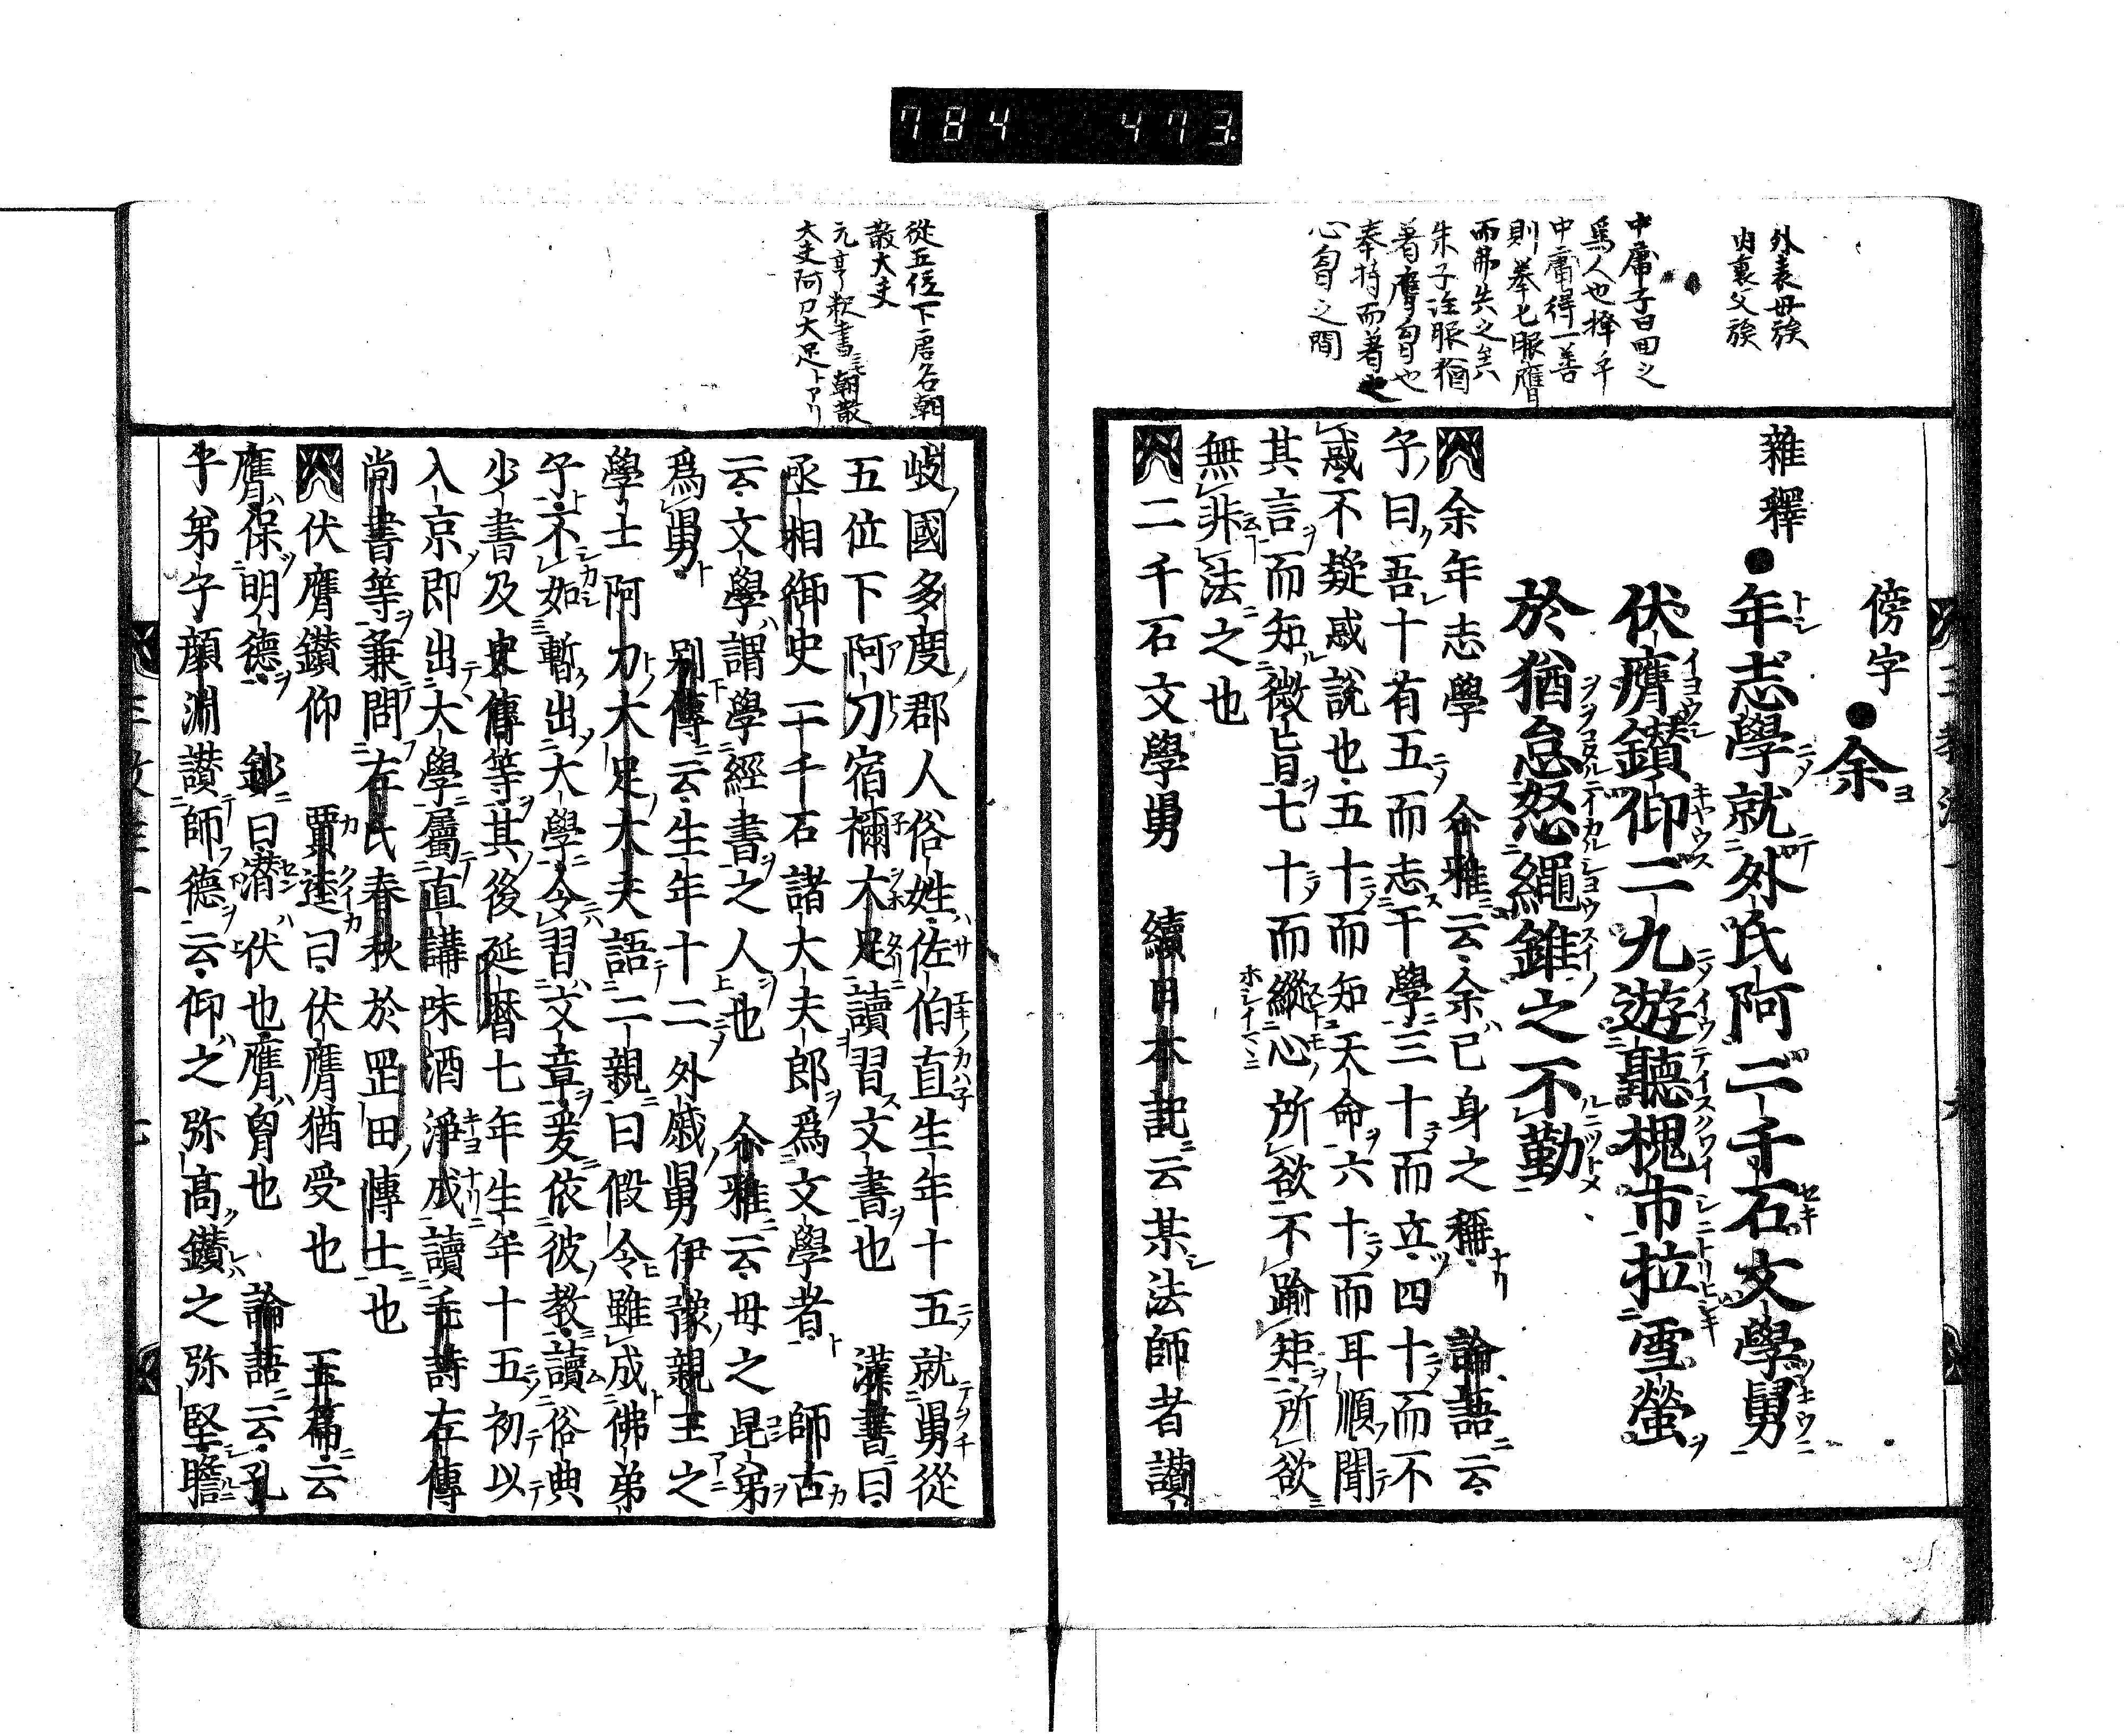 784 473.
外表母族
内裏父族
中庸子曰回之
爲人也擇乎
中庸得一善
則拳七服膺
而弗失之矣
朱子註服猶
著膺胷也
奉持而著之
心胷之間
雜釋
傍字●余
●年志學就外氏阿二千石文學舅
伏膺鑚仰二九遊聽槐市拉雪螢
於猶怠怒繩錐之不勤
余年志學 尒雅云余已身之稱 論語云
子曰吾十有五而志干學三十而立四十而不
惑不疑惑說也五十而知天命六十而耳順聞
其言而知微旨七十而縱心所欲不踰矩所欲
無非法之也
二千石文學舅 續日本記云某法師者讃
岐國多度郡人俗姓佐伯直生年十五就舅從
五位下阿刀宿禰大足讀習文書也 漢書曰
丞相御史二千石諸大夫郎爲文學者 師古
云文學謂學經書之人也 尒雅云母之昆弟
爲舅 别傳云生年十二外戚舅伊豫親王之
學士阿刀大足大夫語二親曰假令雖成佛弟
子不如暫出大學令習文章爰依彼教讀俗典
少書及史傳等其後延暦七年生年十五初以
入京即出大學屬直講味酒淨成讀毛詩左傳
尚書等兼問左氏春秋於罡田博士也
伏膺鑚仰 賈逵曰伏膺猶受也 玉篇云
膺保明德 鈔曰潜伏也膺胷也 論語云孔
子弟子顔淵讃師德云仰之弥高鑚之弥堅瞻
從五位下唐名朝
散大夫
元亨釈書ニモ朝散
大夫阿刀大足トアリ